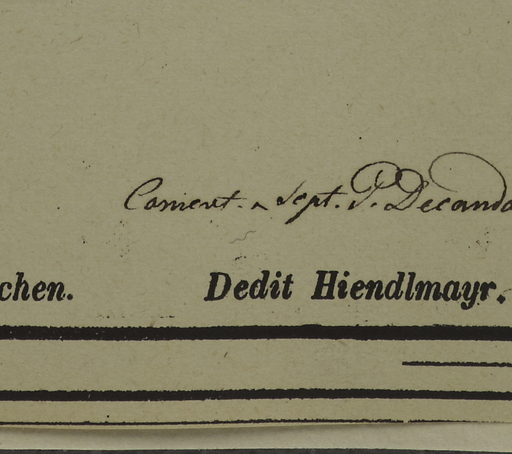 Comert. a Sept. P. Decando
chen. Dedit Hiendlmayr.